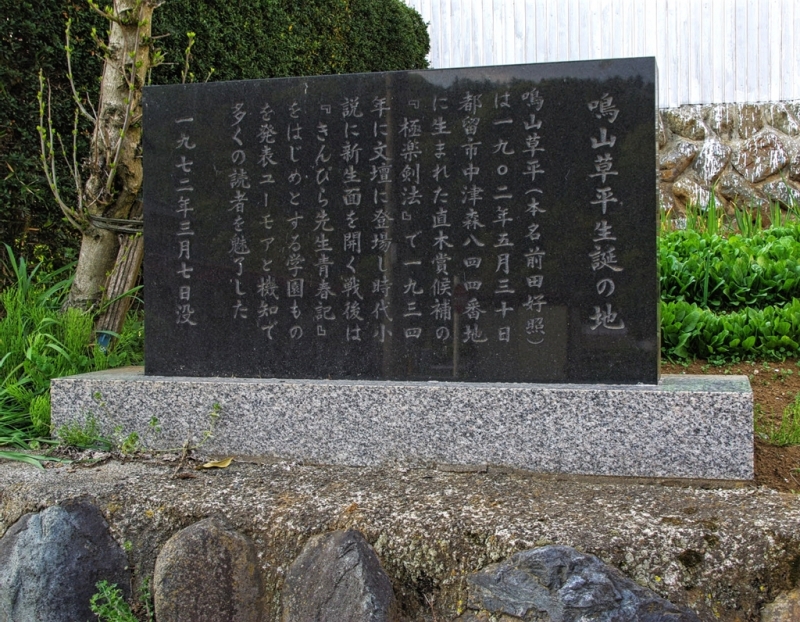 鳴山草平生誕の地
鳴山草平（本名前田好照）
は一九〇二年五月三十日
都留市中津森八四四番地
に生まれた直木賞候補の
『極楽剣法』で一九三四
年に文壇に登場し時代小
説に新生面を開く戦後は
『きんぴら先生青春記』
をはじめとする学園もの
を発表ユーモアと機知で
多くの読者を魅了した
一九七二年三月七日没